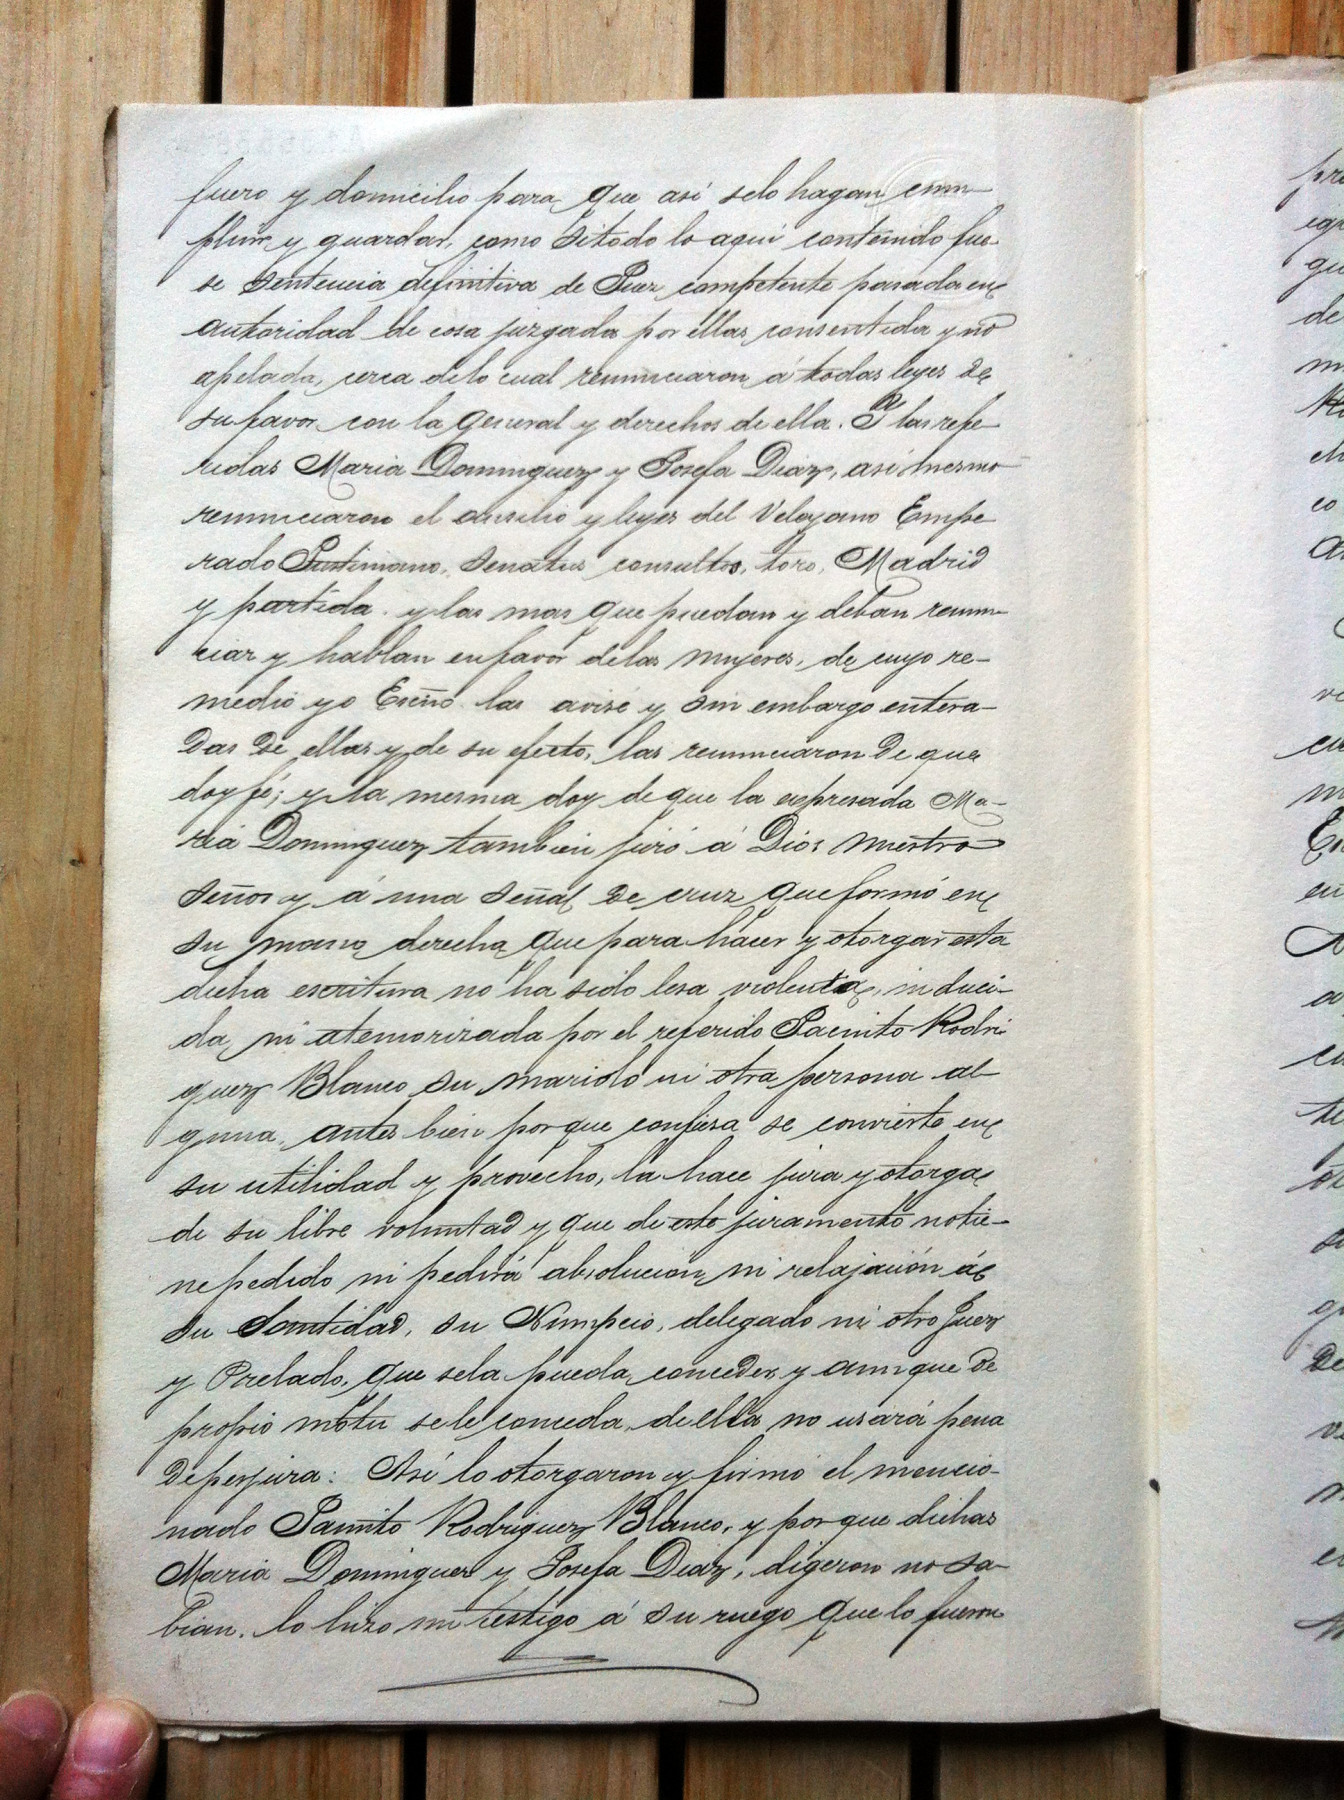 fuero y domicilio para que asi selo hagan cum-
plir y guardar, como sitodo lo aqui contenido fue-
se sentencia definitiva de Juez competente pasada en
autoridad de cosa juzgada por ellas consentida y no
apelada, cerca delo cual renunciaron á todas leyes de
su favor con la general y derechos de ella. Y las refe-
ridas Maria Dominguez y Josefa Diaz, asi mesmo
renunciaron el ausilio y leyes del Veleyano Empe
rado Justiniano, Senatus consultos, toro, Madrid
y partida y las mas que puedan y deban renun-
ciar y hablan enfavor delas mujeres, de cuyo re-
medio yo Escño las avisé y sin embargo entera-
das de ellas y de su efecto, las renunciaron de que
doy fé; y la mesma doy de que la espresada Ma-
ria Dominguez tambien juró á Dios nuestro
Señor y á una Señal de cruz que formó en
su mano derecha que para hacer y otorgar esta
dicha escritura no ha sido lesa violenta, induci-
da, ni atemorizada por el referido Jacinto Rodri
guez Blanco su marido ni otra persona al-
guna, antes bien porque confiesa se convierte en
su utilidad y provecho, la hace jura y otorga
de su libre voluntad y que de este juramento notie-
ne pedido ni pedirá absolucion, ni relajación á
su Santidad, su Numpcio, delegado ni otro Juez
y Prelado, que sela pueda conceder y aunque de
propio motu se le conceda, de ella no usará pena
de perjura: Así lo otorgaron y firmó el mencio-
nado Jacinto Rodriguez Blanco, y porque dichas
Maria Dominguez y Josefa Diaz, digeron no sa-
bian, lo hizo un testigo á su ruego que lo fueron